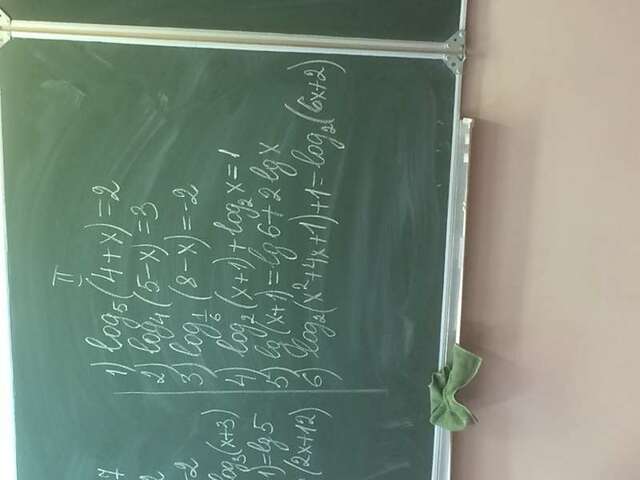 II
1) log₅(4+x)=2
2) log₄(5-x)=3
3) log_{1/6}(8-x)=-2
4) log₂(x+1)+log₂x=1
5) lg(x+1)=lg6+2lgx
6) log₂(x²+4x+1)+1=log₂(6x+2)
7
2
-2
log₃(x+3)
1)=lg5
(2x+12)